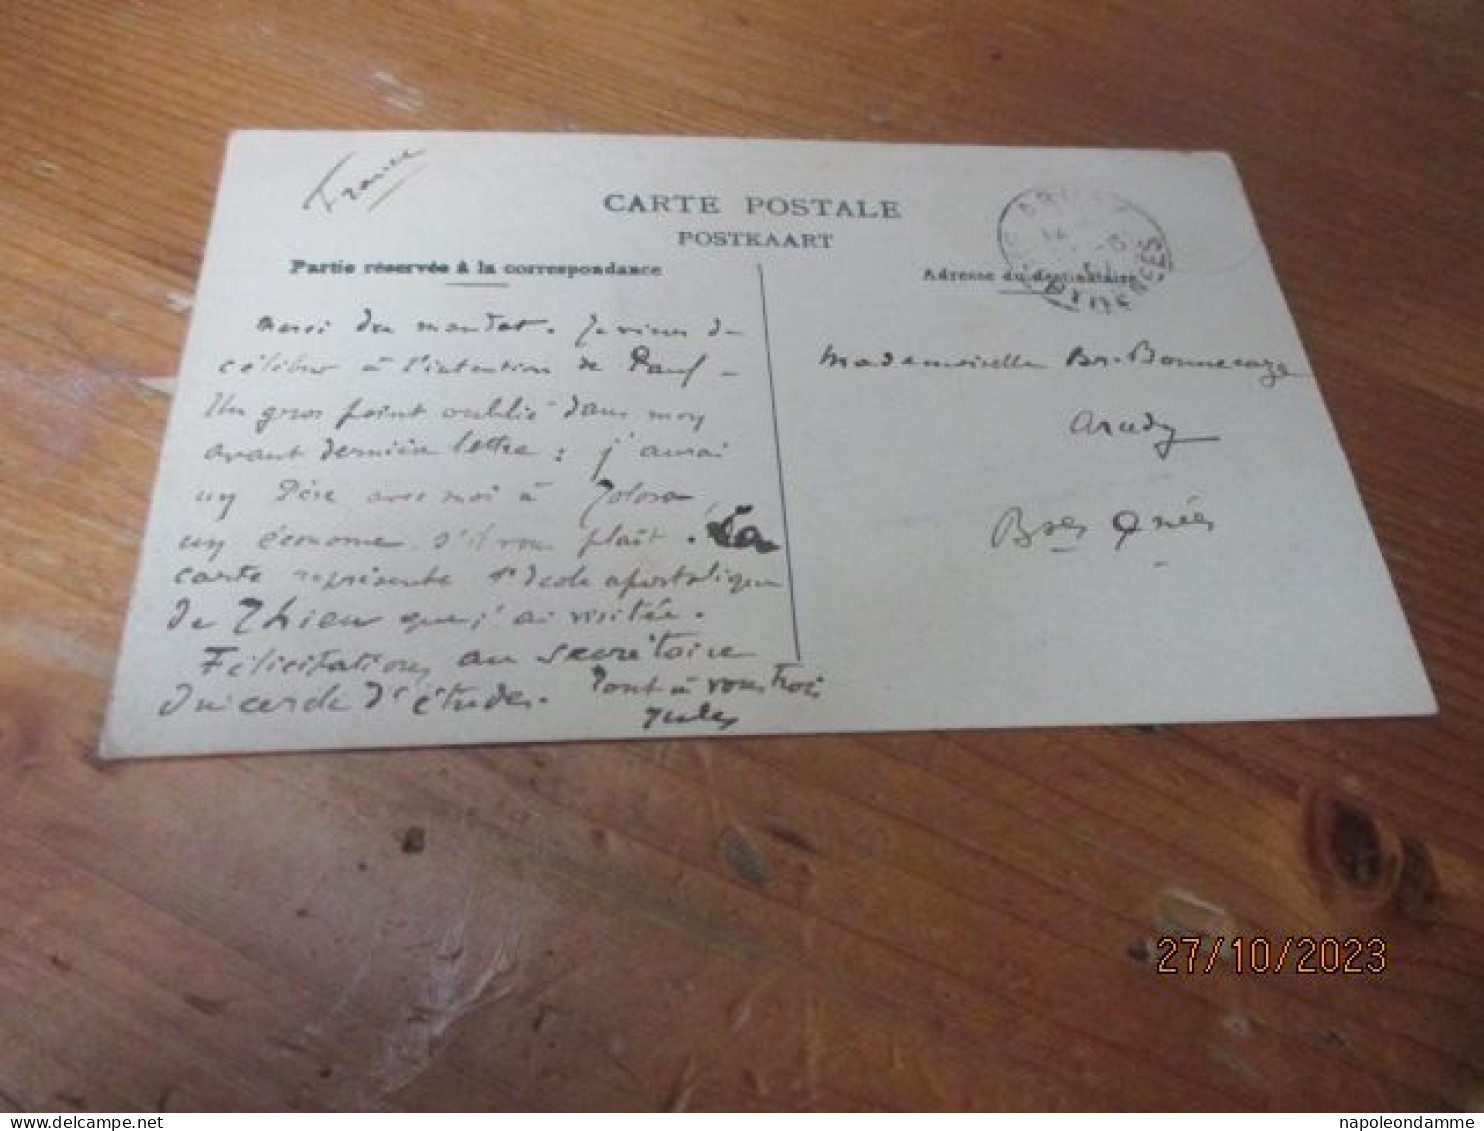 France
CARTE POSTALE
POSTKAART
Partie réservée à la correspondance
Adresse du destinataire
Merci du mandat. Je viens de
célébrer à l'intention de Paul –
Un gros point oublié dans mon
avant dernière lettre : j'aurai
un Père avec moi à Tolosa,
un économe, s'il vous plaît. La
carte représente l'Ecole apostolique
de Thieu que j'ai visitée.
Félicitations au secrétaire
du cercle d'études. Tout à vous trois
Jules
Mademoiselle Br. Bonnecaze
Arudy
Bses Pnées
27/10/2023
napoleondamme